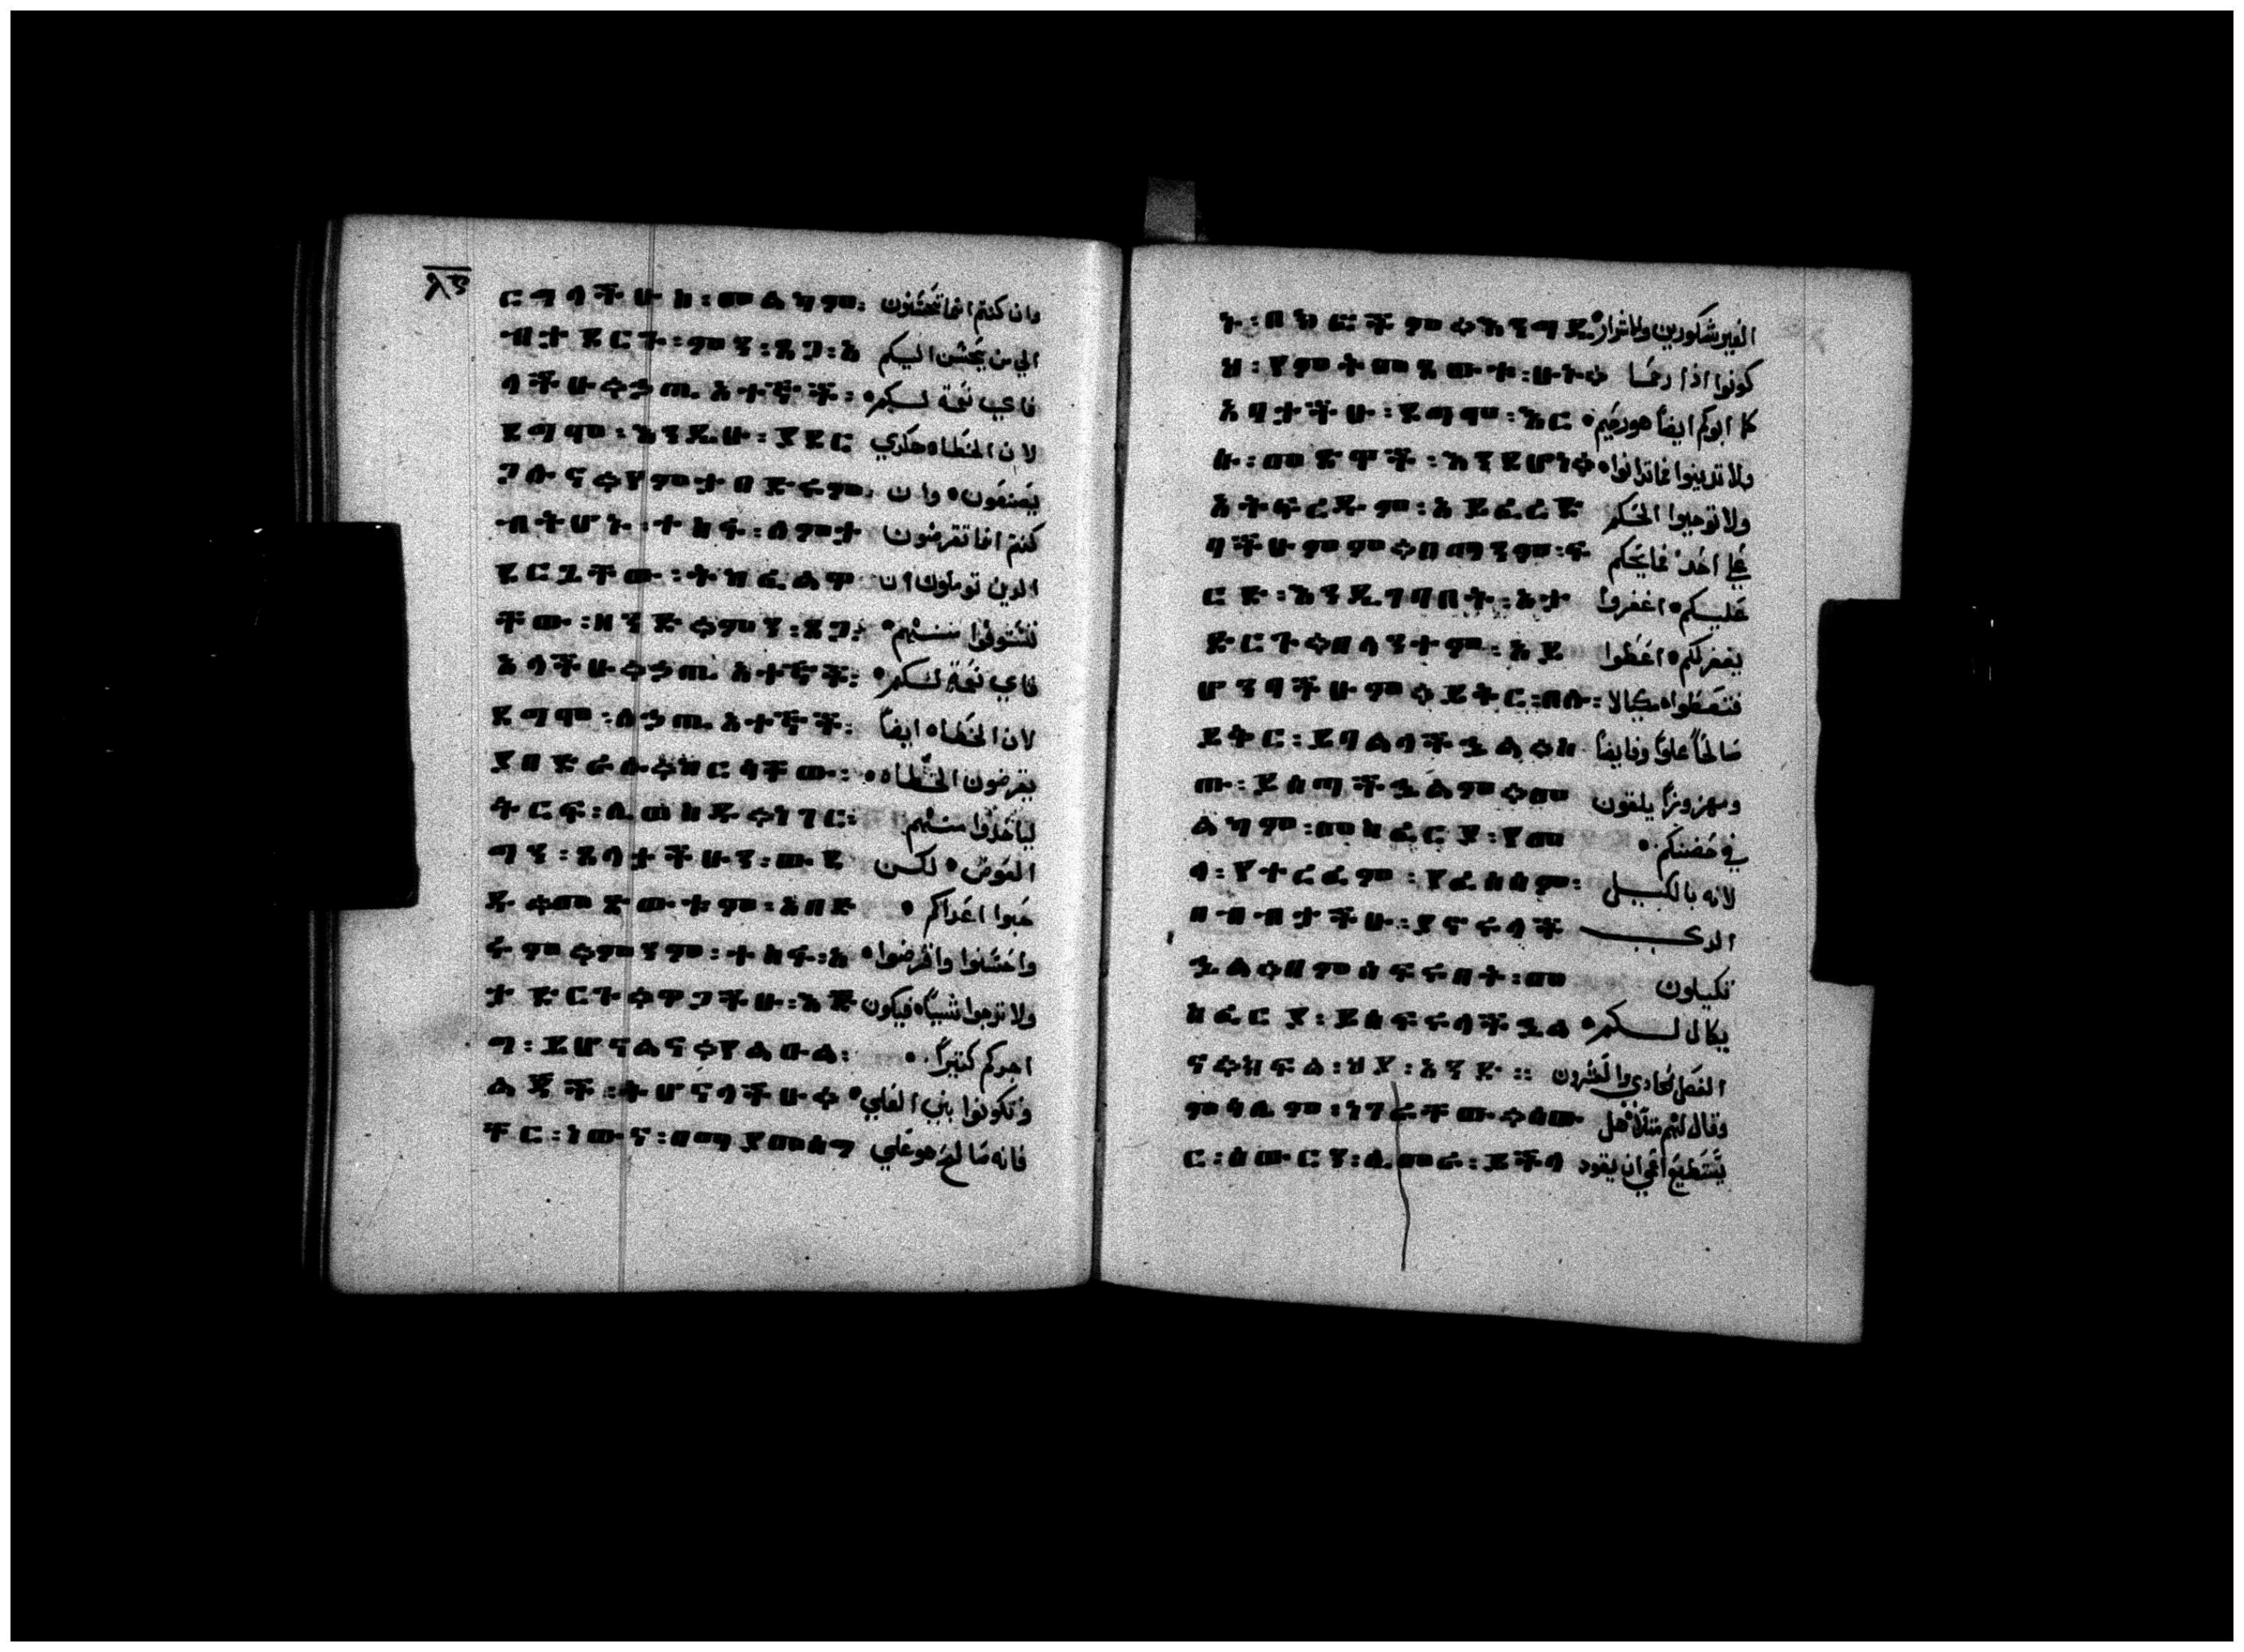 ፳፫
ርግላችሁከ፡መልካም፡ وان كنتم انما تحسنون
ብታደርጉ፡ምን፡ዴጋ፡አ الي من يحسن اليكم
ላችሁ።ኃጢአተኞች፡ فاي نعمة لكم
ደግሞ፡እንዲሁ፡ያደር لان الخطاه هكدي
ጋሉና።የምታበድሩም፡ يصنعون وان
ብትሆኑ፡ተስፋ፡ሰምታ كنتم انما تقرضون
ደርጊቸው፡ትከፈልዋ الدين توملون ان
ቸው፡ዘንድ።ምን፡ዴጋ፡ تستوفوا منهم
አላችሁ።ኃጢአተኞች፡ فاي نعمة لكم
ደግሞ፡ለኃጢአተኞች፡ لان الخطاه ايضاً
ያበድራሉ።ከርሳቸው፡ يقرضون الخطاه
ትርፍ፡ሊወስዱ።ነገር፡ لياخدوا منهم
ግን፡ኄላታችሁን፡ውደ العوض لكن
ዱ።መድውቱም፡አበድ حبوا اعداكم
ሩም።ምንም፡ተስፋ፡አ واحسنوا واقرضوا
ታድርጉ።ዋጋችሁ፡እጅ ولا ترجوا شيياً فيكون
ግ፡ይሆናልና።የልዑል፡ اجركم كتيراً
ልጆች፡ትሆናላችሁ። وتكونوا بني العلي
ቸር፡ነውና፡በማያመሰግ فانه صالح هو علي
ኑ፡በክፎችም።እንግዲ الغير شكورين والاشرار
ህ፡የምትመጸውቱ፡ሁኑ። كونوا اذا رحما
አባታችሁ፡ደግሞ፡እር كما ابوكم ايضاً هو رحيم
ሱ፡መድዋች፡እንደሆነ። ولا تدينوا فما تدانوا
አትፍረዱም፡አይፈረድ ولا توجبوا الحكم
ባችሁምም።በማንም፡ፍ علي احد فما يحكم
ርድ፡እንዲገባበት፡አታ عليكم اغفروا
ድርጉ።በላንተም፡አይ يغفر لكم اعطوا
ሆንባችሁም።ይትር፡በሉ፡ فتعطوا مكيالا
ይትር፡ይባልላችኋል።ከ صالحاً علوا وفايضاً
ጡ፡ይሰጣችኋልም።መ ومهزوزاً يلقون
ልካም፡መስፈርያ፡የመ في حضنكم
ላ፡የተረፈም፡የፈሰሰም፡ لانه بالكيل
በብብታችሁ፡ያኖራላች الدي
ኋል።በምሰፍሩበት፡መ تكيلون
ስፈርያ፡ይሰፍራላችኋል يكال لكم
ና።ክፍል፡፳፩፡አንድ፡፡ الفصل الحادي والعشرون
ምሳሌም፡ነገራቸው።ዕው وقال لهم متلاً هل
ር፡ዕውርን፡ሊመራ፡ይችላ يستطيع اعمي ان يقود